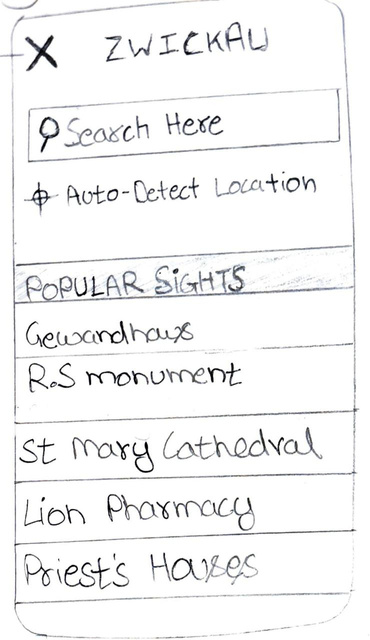 X ZWICKAU
Search Here
Auto-Detect Location
POPULAR SIGHTS
Gewandhaus
R.S monument
St Mary Cathedral
Lion Pharmacy
Priest's Houses